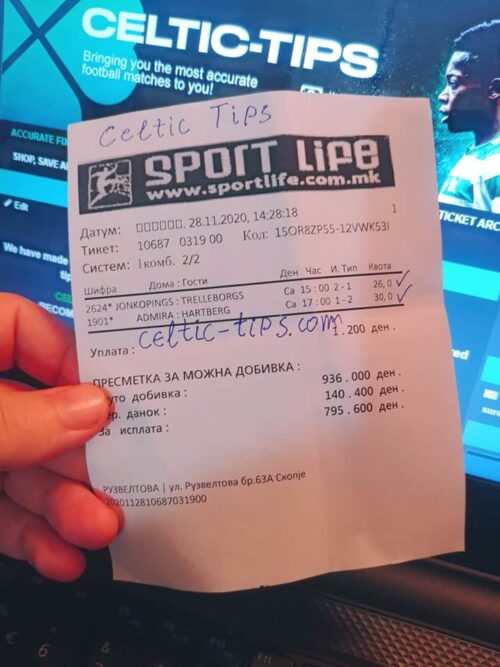 CELTIC-TIPS
Bringing you the most accurate
football matches to you!
ACCURATE
SHOP, SAVE
Edit
We have made
TICKET ARC
Celtic Tips
SPORT LIFE
www.sportlife.com.mk
Датум: 28.11.2020, 14:28:18 1
Тикет: 10687 0319 00 Код: 15OR8ZP55-12VWK53I
Систем: 1комб. 2/2
Шифра Дома : Гости Ден Час И.Тип Квота
2624* JONKOPINGS : TRELLEBORGS Са 15:00 2-1 26,0 ✓
1901* ADMIRA : HARTBERG Са 17:00 1-2 30,0 ✓
celtic-tips.com
Уплата : 1.200 ден.
ПРЕСМЕТКА ЗА МОЖНА ДОБИВКА :
добивка : 936.000 ден.
данок : 140.400 ден.
За исплата : 795.600 ден.
РУЗВЕЛТОВА | ул. Рузвелтова бр.63А Скопје
2020112810687031900